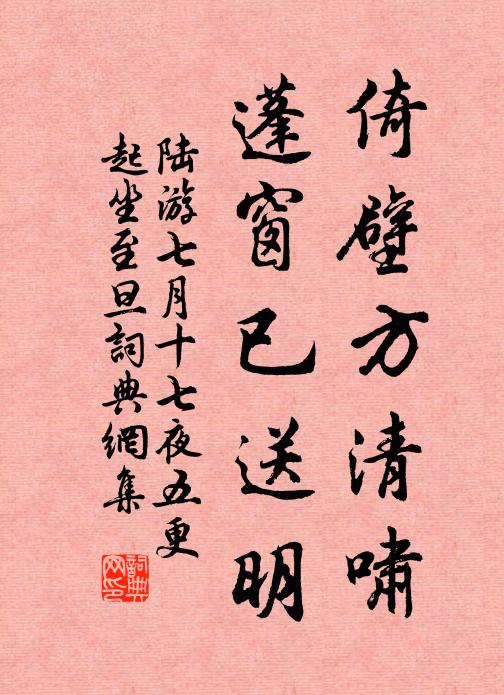 倚壁方清嘯
蓬窗已送明
陆游七月十七夜五更
起坐至旦詞典網集
詞典
网印